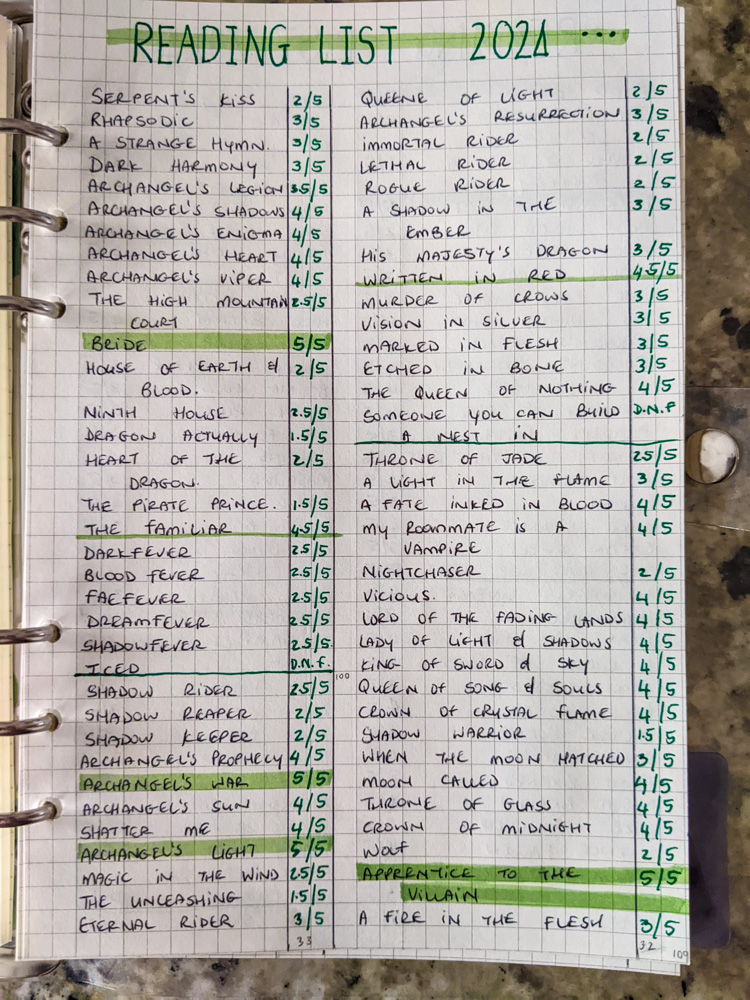 READING LIST 2024 ...
SERPENT'S KISS 2/5
RHAPSODIC 3/5
A STRANGE HYMN. 3/5
DARK HARMONY 3/5
ARCHANGEL'S LEGION 3.5/5
ARCHANGEL'S SHADOWS 4/5
ARCHANGEL'S ENIGMA 4/5
ARCHANGEL'S HEART 4/5
ARCHANGEL'S VIPER 4/5
THE HIGH MOUNTAIN 2.5/5
COURT
BRIDE 5/5
HOUSE OF EARTH & 2/5
BLOOD.
NINTH HOUSE 2.5/5
DRAGON ACTUALLY 1.5/5
HEART OF THE 2/5
DRAGON.
THE PIRATE PRINCE. 1.5/5
THE FAMILIAR 4.5/5
DARKFEVER 2.5/5
BLOOD FEVER 2.5/5
FAEFEVER 2.5/5
DREAMFEVER 2.5/5
SHADOWFEVER 2.5/5
ICED D.N.F.
SHADOW RIDER 2.5/5
SHADOW REAPER 2/5
SHADOW KEEPER 2/5
ARCHANGEL'S PROPHECY 4/5
ARCHANGEL'S WAR 5/5
ARCHANGEL'S SUN 4/5
SHATTER ME 4/5
ARCHANGEL'S LIGHT 5/5
MAGIC IN THE WIND 2.5/5
THE UNLEASHING 1.5/5
ETERNAL RIDER 3/5
33
QUEENE OF LIGHT 2/5
ARCHANGEL'S RESURRECTION 3/5
IMMORTAL RIDER 2/5
LETHAL RIDER 2/5
ROGUE RIDER 2/5
A SHADOW IN THE 3/5
EMBER
HIS MAJESTY'S DRAGON 3/5
WRITTEN IN RED 4.5/5
MURDER OF CROWS 3/5
VISION IN SILVER 3/5
MARKED IN FLESH 3/5
ETCHED IN BONE 3/5
THE QUEEN OF NOTHING 4/5
SOMEONE YOU CAN BUILD D.N.F
A NEST IN
THRONE OF JADE 2.5/5
A LIGHT IN THE FLAME 3/5
A FATE INKED IN BLOOD 4/5
MY ROOMMATE IS A 4/5
VAMPIRE
NIGHTCHASER 2/5
VICIOUS. 4/5
LORD OF THE FADING LANDS 4/5
LADY OF LIGHT & SHADOWS 4/5
KING OF SWORD & SKY 4/5
100
QUEEN OF SONG & SOULS 4/5
CROWN OF CRYSTAL FLAME 4/5
SHADOW WARRIOR 1.5/5
WHEN THE MOON HATCHED 3/5
MOON CALLED 4/5
THRONE OF GLASS 4/5
CROWN OF MIDNIGHT 4/5
WOLF 2/5
APPRENTICE TO THE 5/5
VILLAIN
A FIRE IN THE FLESH 3/5
32
109